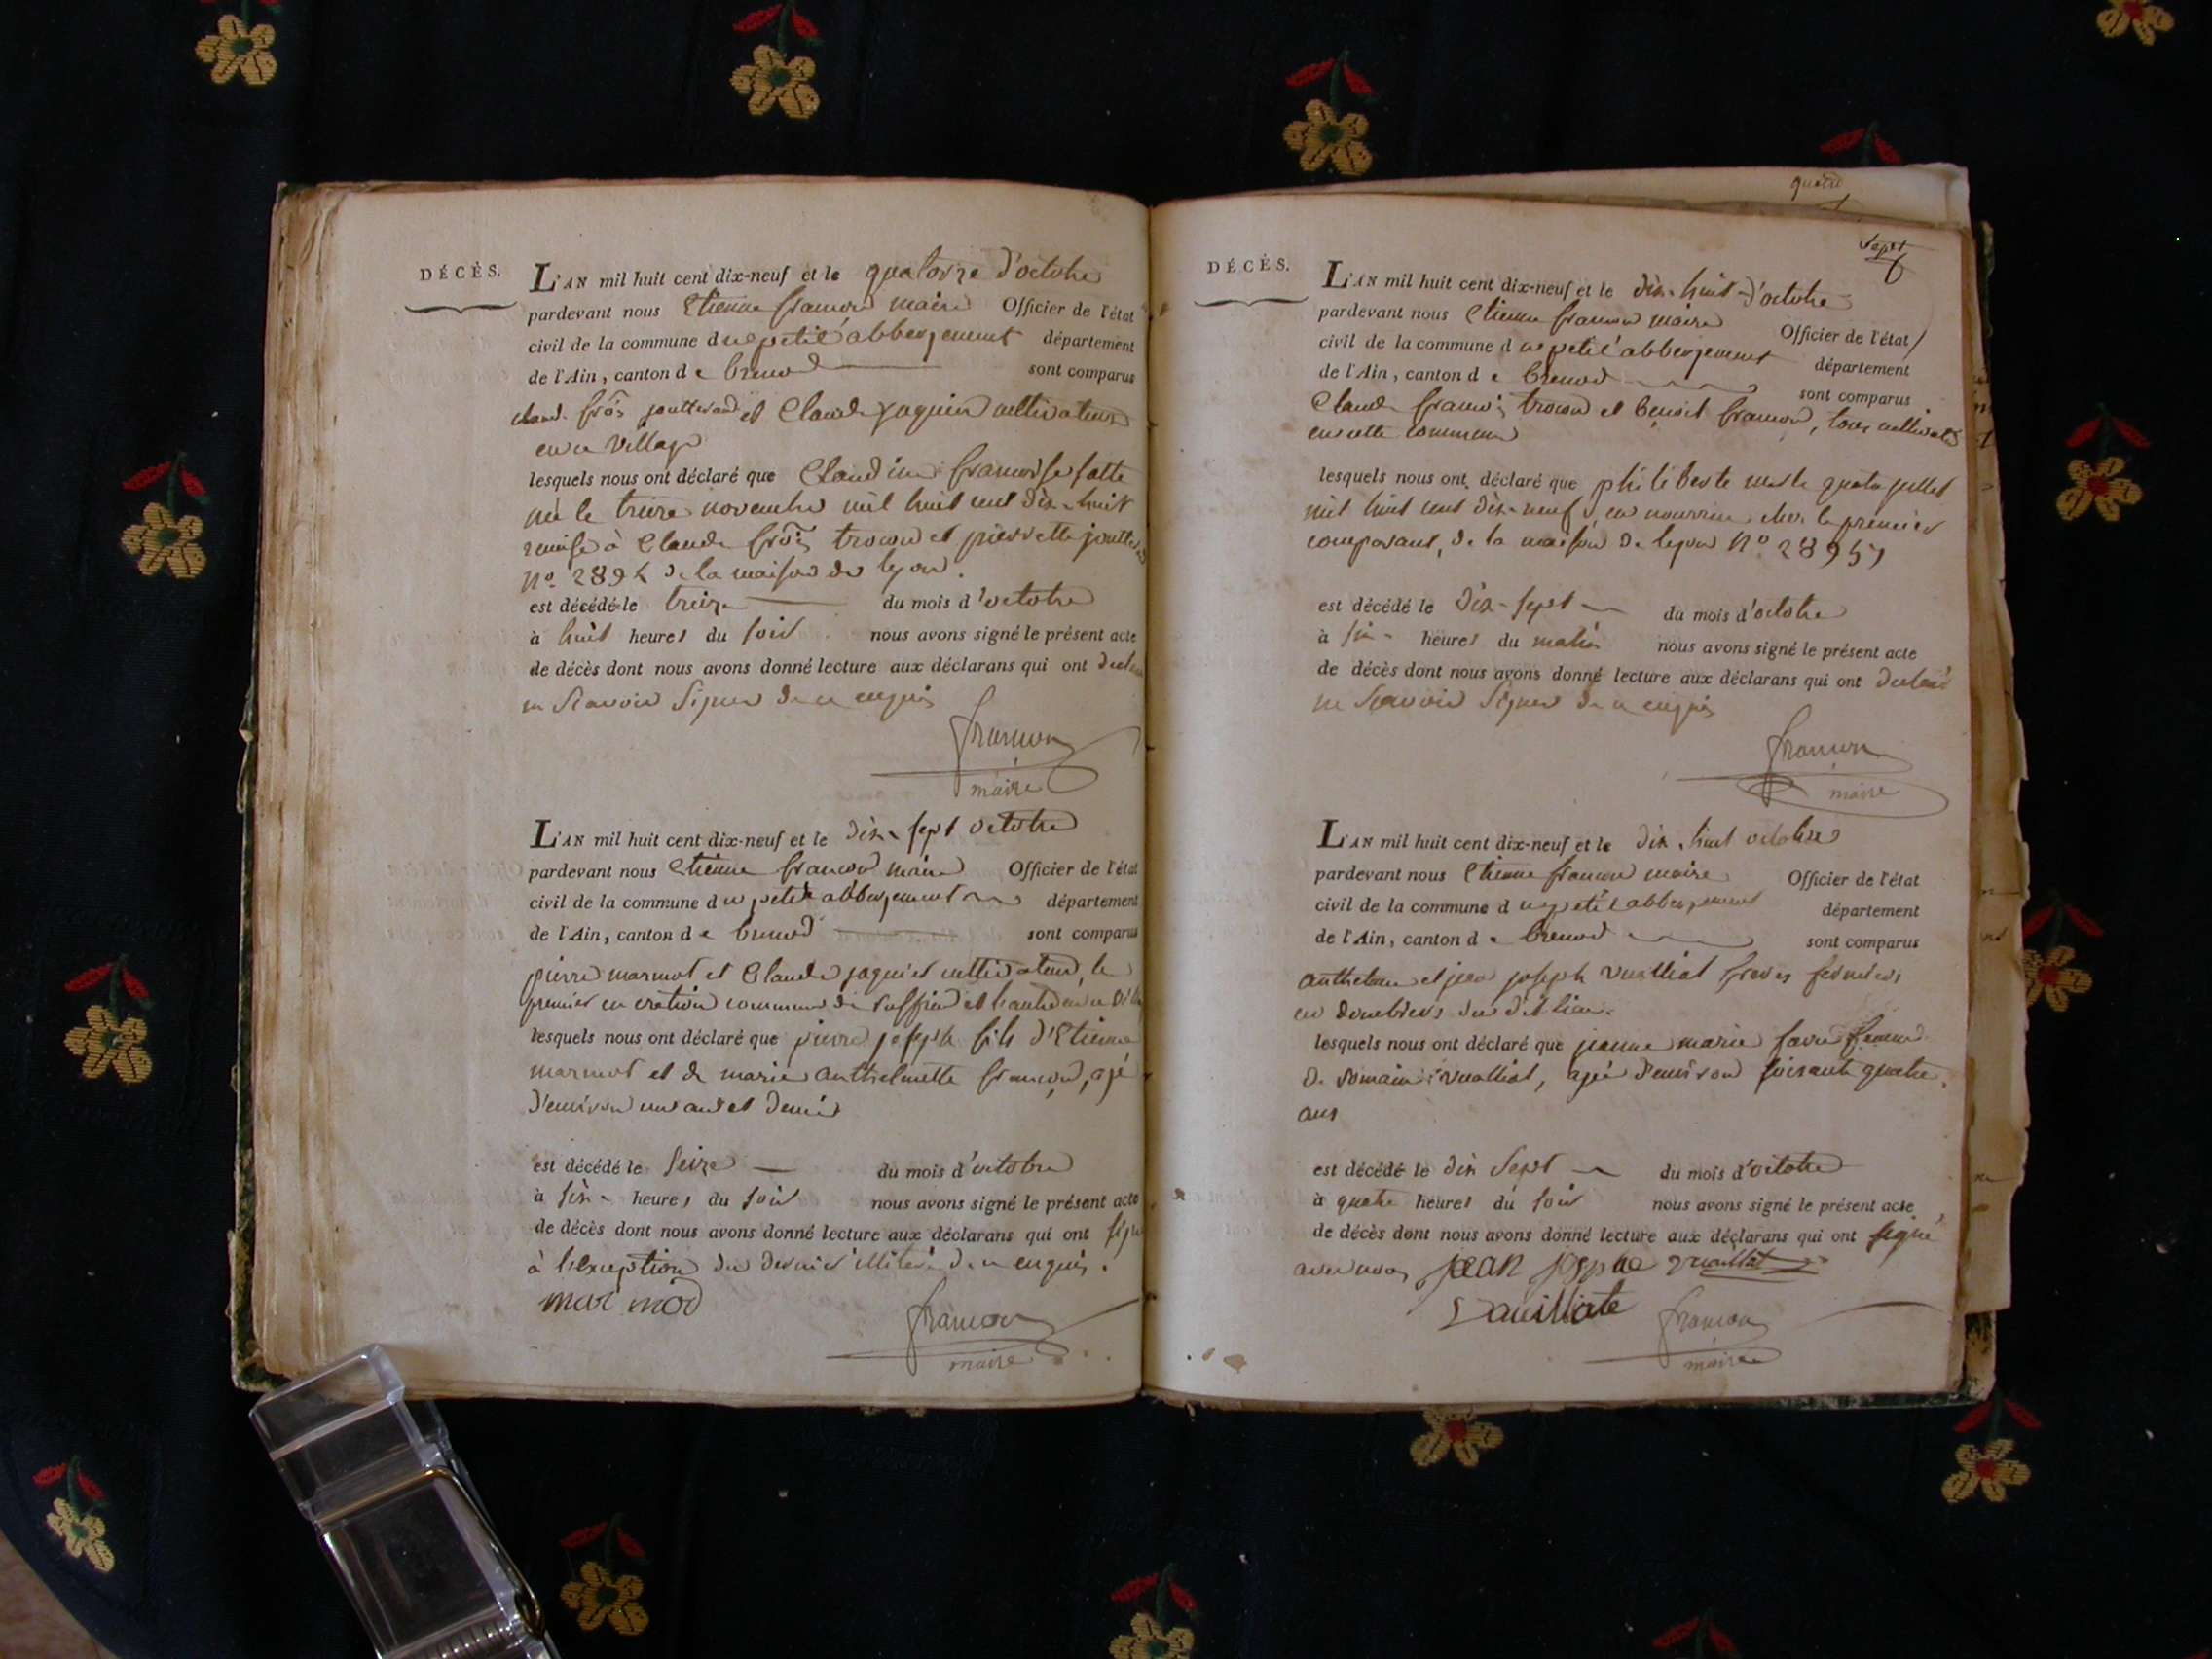 DÉCÈS.
L'AN mil huit cent dix-neuf et le quatorze d'octobre
pardevant nous Etienne francon maire Officier de l'état
civil de la commune du petit abbergement département
de l'Ain, canton de brenod sont comparus
claude frois joutterand et Claude jaquier cultivateurs
en ce village
lesquels nous ont déclaré que Claudine francoise
née le treize novembre mil huit cent dix-huit
remise à Claude frois trocon et pierrette
N° de la maison de lyon.
est décédé le treize du mois d'octobre
à huit heures du soir nous avons signé le présent acte
de décès dont nous avons donné lecture aux déclarans qui ont
ne scavoir signer de ce enquis
francon
maire
L'AN mil huit cent dix-neuf et le dix-sept octobre
pardevant nous Etienne francon maire Officier de l'état
civil de la commune du petit abbergement département
de l'Ain, canton de brenod sont comparus
pierre marmot et Claude jaquier cultivateurs, le
premier en commune de ruffieu et l'autre en ce
lesquels nous ont déclaré que pierre joseph fils d'Etienne
marmot et de marie anthelmette francon, agé
d'environ un an et demis
est décédé le seize du mois d'octobre
à six heures du soir nous avons signé le présent acte
de décès dont nous avons donné lecture aux déclarans qui ont
à l'exception du dernier illiteré de ce enquis.
mar mod
francon
maire
quatre
sept
DÉCÈS.
L'AN mil huit cent dix-neuf et le dix-huit d'octobre
pardevant nous Etienne francon maire Officier de l'état
civil de la commune du petit abbergement département
de l'Ain, canton de brenod sont comparus
Claude francois trocon et benoit francon, tous
en cette commune
lesquels nous ont déclaré que philiberte née le juillet
mil huit cent dix-neuf, en nourrice chez le premier
comparant, de la maison de lyon N°
est décédé le dix-sept du mois d'octobre
à six heures du matin nous avons signé le présent acte
de décès dont nous avons donné lecture aux déclarans qui ont declaré
ne scavoir signer de ce enquis
francon
maire
L'AN mil huit cent dix-neuf et le dix-huit octobre
pardevant nous Etienne francon maire Officier de l'état
civil de la commune du petit abbergement département
de l'Ain, canton de brenod sont comparus
anthelme et jean joseph vuilliat freres fermiers
en du dit lieu.
lesquels nous ont déclaré que jeanne marie favre femme
de romain vuilliat, agée d'environ soixante quatre
ans
est décédé le dix sept du mois d'octobre
à quatre heures du soir nous avons signé le présent acte
de décès dont nous avons donné lecture aux déclarans qui ont signé
avec nous jean
francon
maire